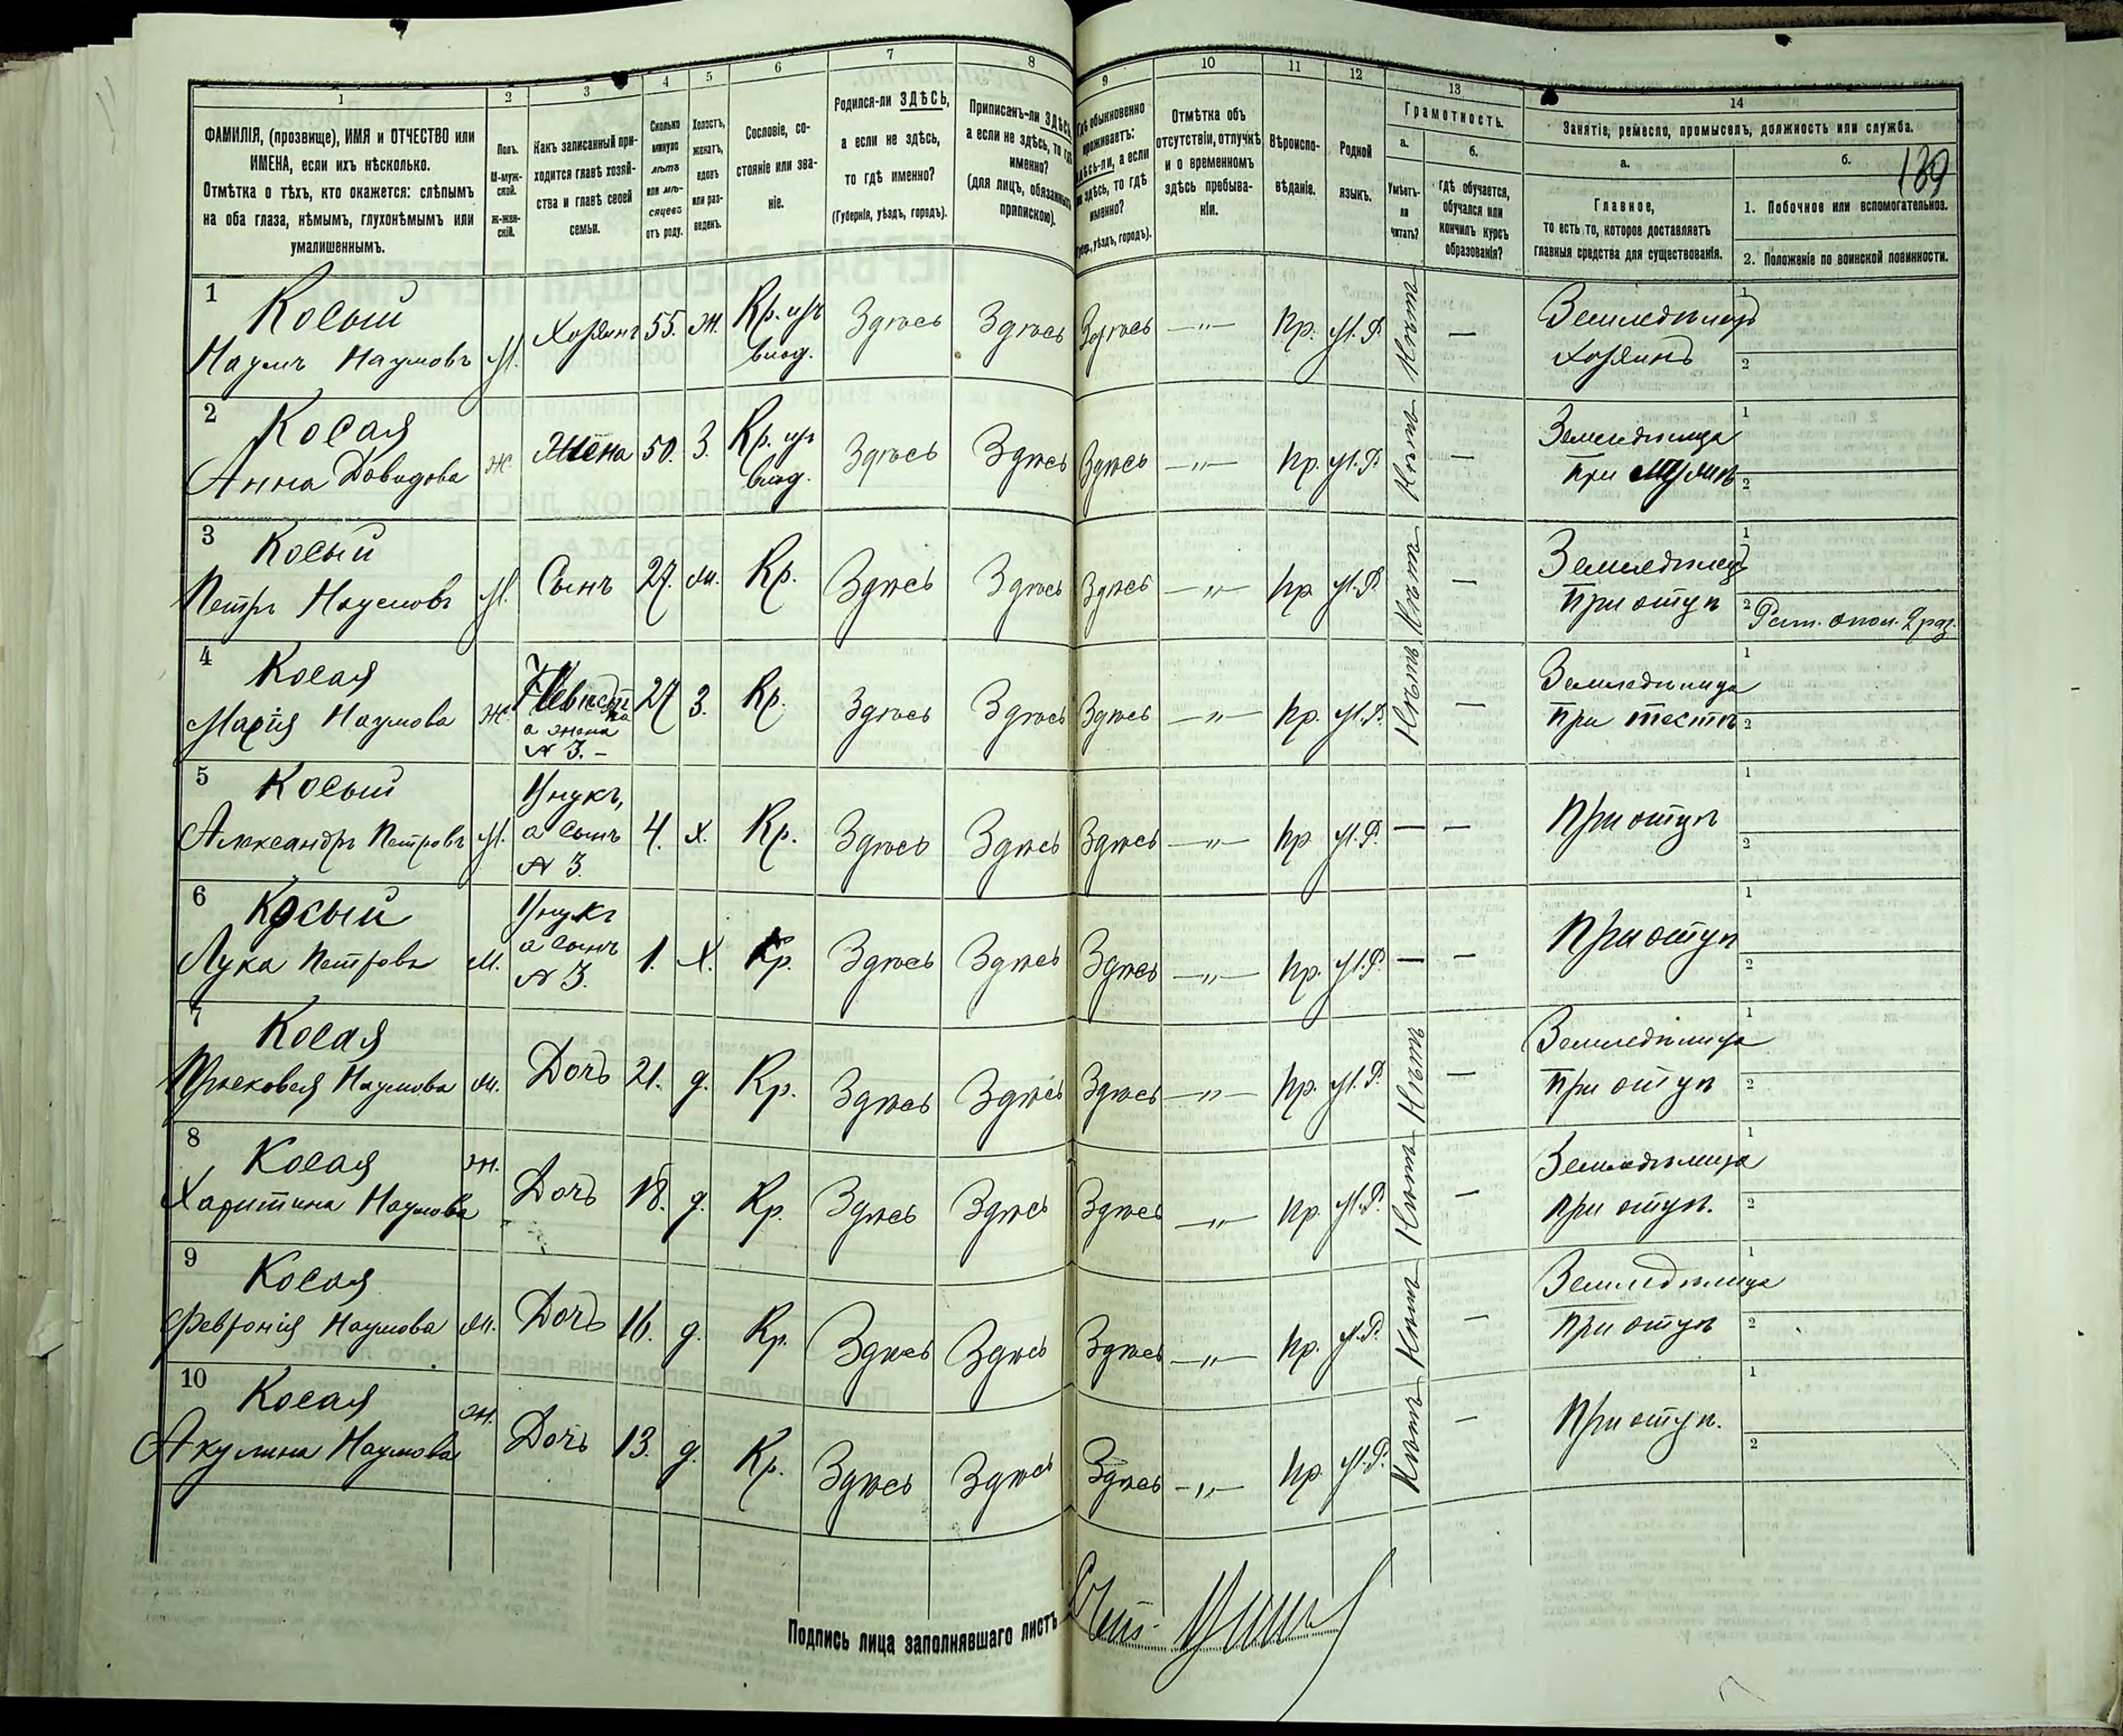 1 2 3 4 5 6 7 8 9 10 11 12 13 14
ФАМИЛІЯ, (прозвище), ИМЯ и ОТЧЕСТВО или
ИМЕНА, если ихъ нѣсколько.
Отмѣтка о тѣхъ, кто окажется: слѣпымъ
на оба глаза, нѣмымъ, глухонѣмымъ или
умалишеннымъ.
Полъ.
М-муж-
ской.
Ж-жен-
скій.
Какъ записанный при-
ходится главѣ хозяй-
ства и главѣ своей
семьи.
Сколько
минуло
лѣтъ
или мѣ-
сяцевъ
отъ роду.
Холостъ,
женатъ,
вдовъ
или раз-
веденъ.
Сословіе, со-
стояніе или зва-
ніе.
Родился-ли ЗДѢСЬ,
а если не здѣсь,
то гдѣ именно?
(Губернія, уѣздъ, городъ).
Приписанъ-ли ЗДѢСЬ,
а если не здѣсь, то гдѣ
именно?
(для лицъ, обязанныхъ
припискою).
Гдѣ обыкновенно
проживаетъ:
здѣсь-ли, а если
не здѣсь, то гдѣ
именно?
(Губер., уѣздъ, городъ).
Отмѣтка объ
отсутствіи, отлучкѣ
и о временномъ
здѣсь пребыва-
ніи.
Вѣроиспо-
вѣданіе.
Родной
языкъ.
Грамотность.
а.
Умѣетъ-
ли
читать?
б.
гдѣ обучается,
обучался или
кончилъ курсъ
образованія?
Занятіе, ремесло, промыселъ, должность или служба.
а.
Главное,
то есть то, которое доставляетъ
главныя средства для существованія.
б.
139
1. Побочное или вспомогательное.
2. Положеніе по воинской повинности.
1 Косый
Наумъ Наумовъ М. Хозяинъ 55. ж. Кр. изъ влад. Здѣсь Здѣсь Здѣсь —"— Пр. М.Р. Нѣтъ — Земледѣлецъ Хозяинъ 1 2
2 Косая
Анна Давидова Ж. Жена 50. З. Кр. изъ влад. Здѣсь Здѣсь Здѣсь —"— Пр. М.Р. Нѣтъ — Земледѣлица При мужѣ 1 2
3 Косый
Петръ Наумовъ М. Сынъ 27. ж. Кр. Здѣсь Здѣсь Здѣсь —"— Пр. М.Р. Нѣтъ — Земледѣлецъ При отцѣ 1 2 Рат. опол. 2 раз.
4 Косая
Марія Наумова Ж. Невѣстка а жена № 3.- 27 З. Кр. Здѣсь Здѣсь Здѣсь —"— Пр. М.Р. Нѣтъ — Земледѣлица При тестѣ 1 2
5 Косый
Александръ Петровъ М. Унукъ, а сынъ № 3. 4. х. Кр. Здѣсь Здѣсь Здѣсь —"— Пр. М.Р. — — При отцѣ 1 2
6 Косый
Лука Петровъ М. Унукъ а сынъ № 3. 1. Х. Кр. Здѣсь Здѣсь Здѣсь —"— Пр. М.Р. — — При отцѣ 1 2
7 Косая
Прасковея Наумова ж. Дочь 21. д. Кр. Здѣсь Здѣсь Здѣсь —"— Пр. М.Р. Нѣтъ — Земледѣлица При отцѣ 1 2
8 Косая
Харитина Наумова ж. Дочь 18. д. Кр. Здѣсь Здѣсь Здѣсь —"— Пр. М.Р. Нѣтъ — Земледѣлица При отцѣ. 1 2
9 Косая
Февронія Наумова ж. Дочь 16. д. Кр. Здѣсь Здѣсь Здѣсь —"— Пр. М.Р. Нѣтъ — Земледѣлица При отцѣ 1 2
10 Косая
Акулина Наумова ж. Дочь 13. д. Кр. Здѣсь Здѣсь Здѣсь —"— Пр. М.Р. Нѣтъ — При отцѣ. 1 2
Подпись лица заполнявшаго листъ